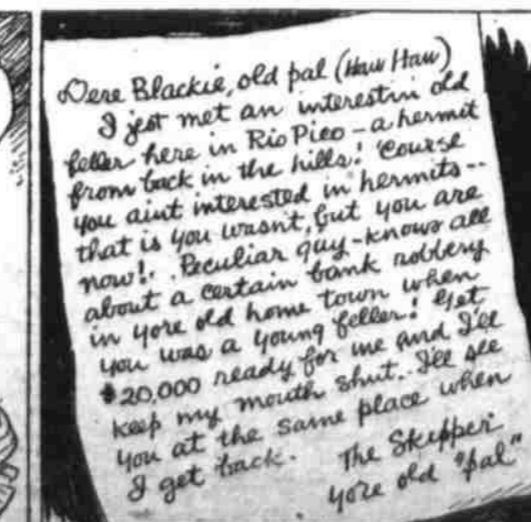 Dere Blackie, old pal (Haw Haw)
I jest met an interestin old
feller here in Rio Pico - a hermit
from back in the hills! 'Course
you aint interested in hermits --
that is you wasn't, but you are
now!.. Peculiar guy - knows all
about a certain bank robbery
in yore old home town when
you was a young feller! Get
$20,000 ready for me and I'll
keep my mouth shut.. I'll see
you at the same place when
I get back.
The Skipper
yore old "pal"